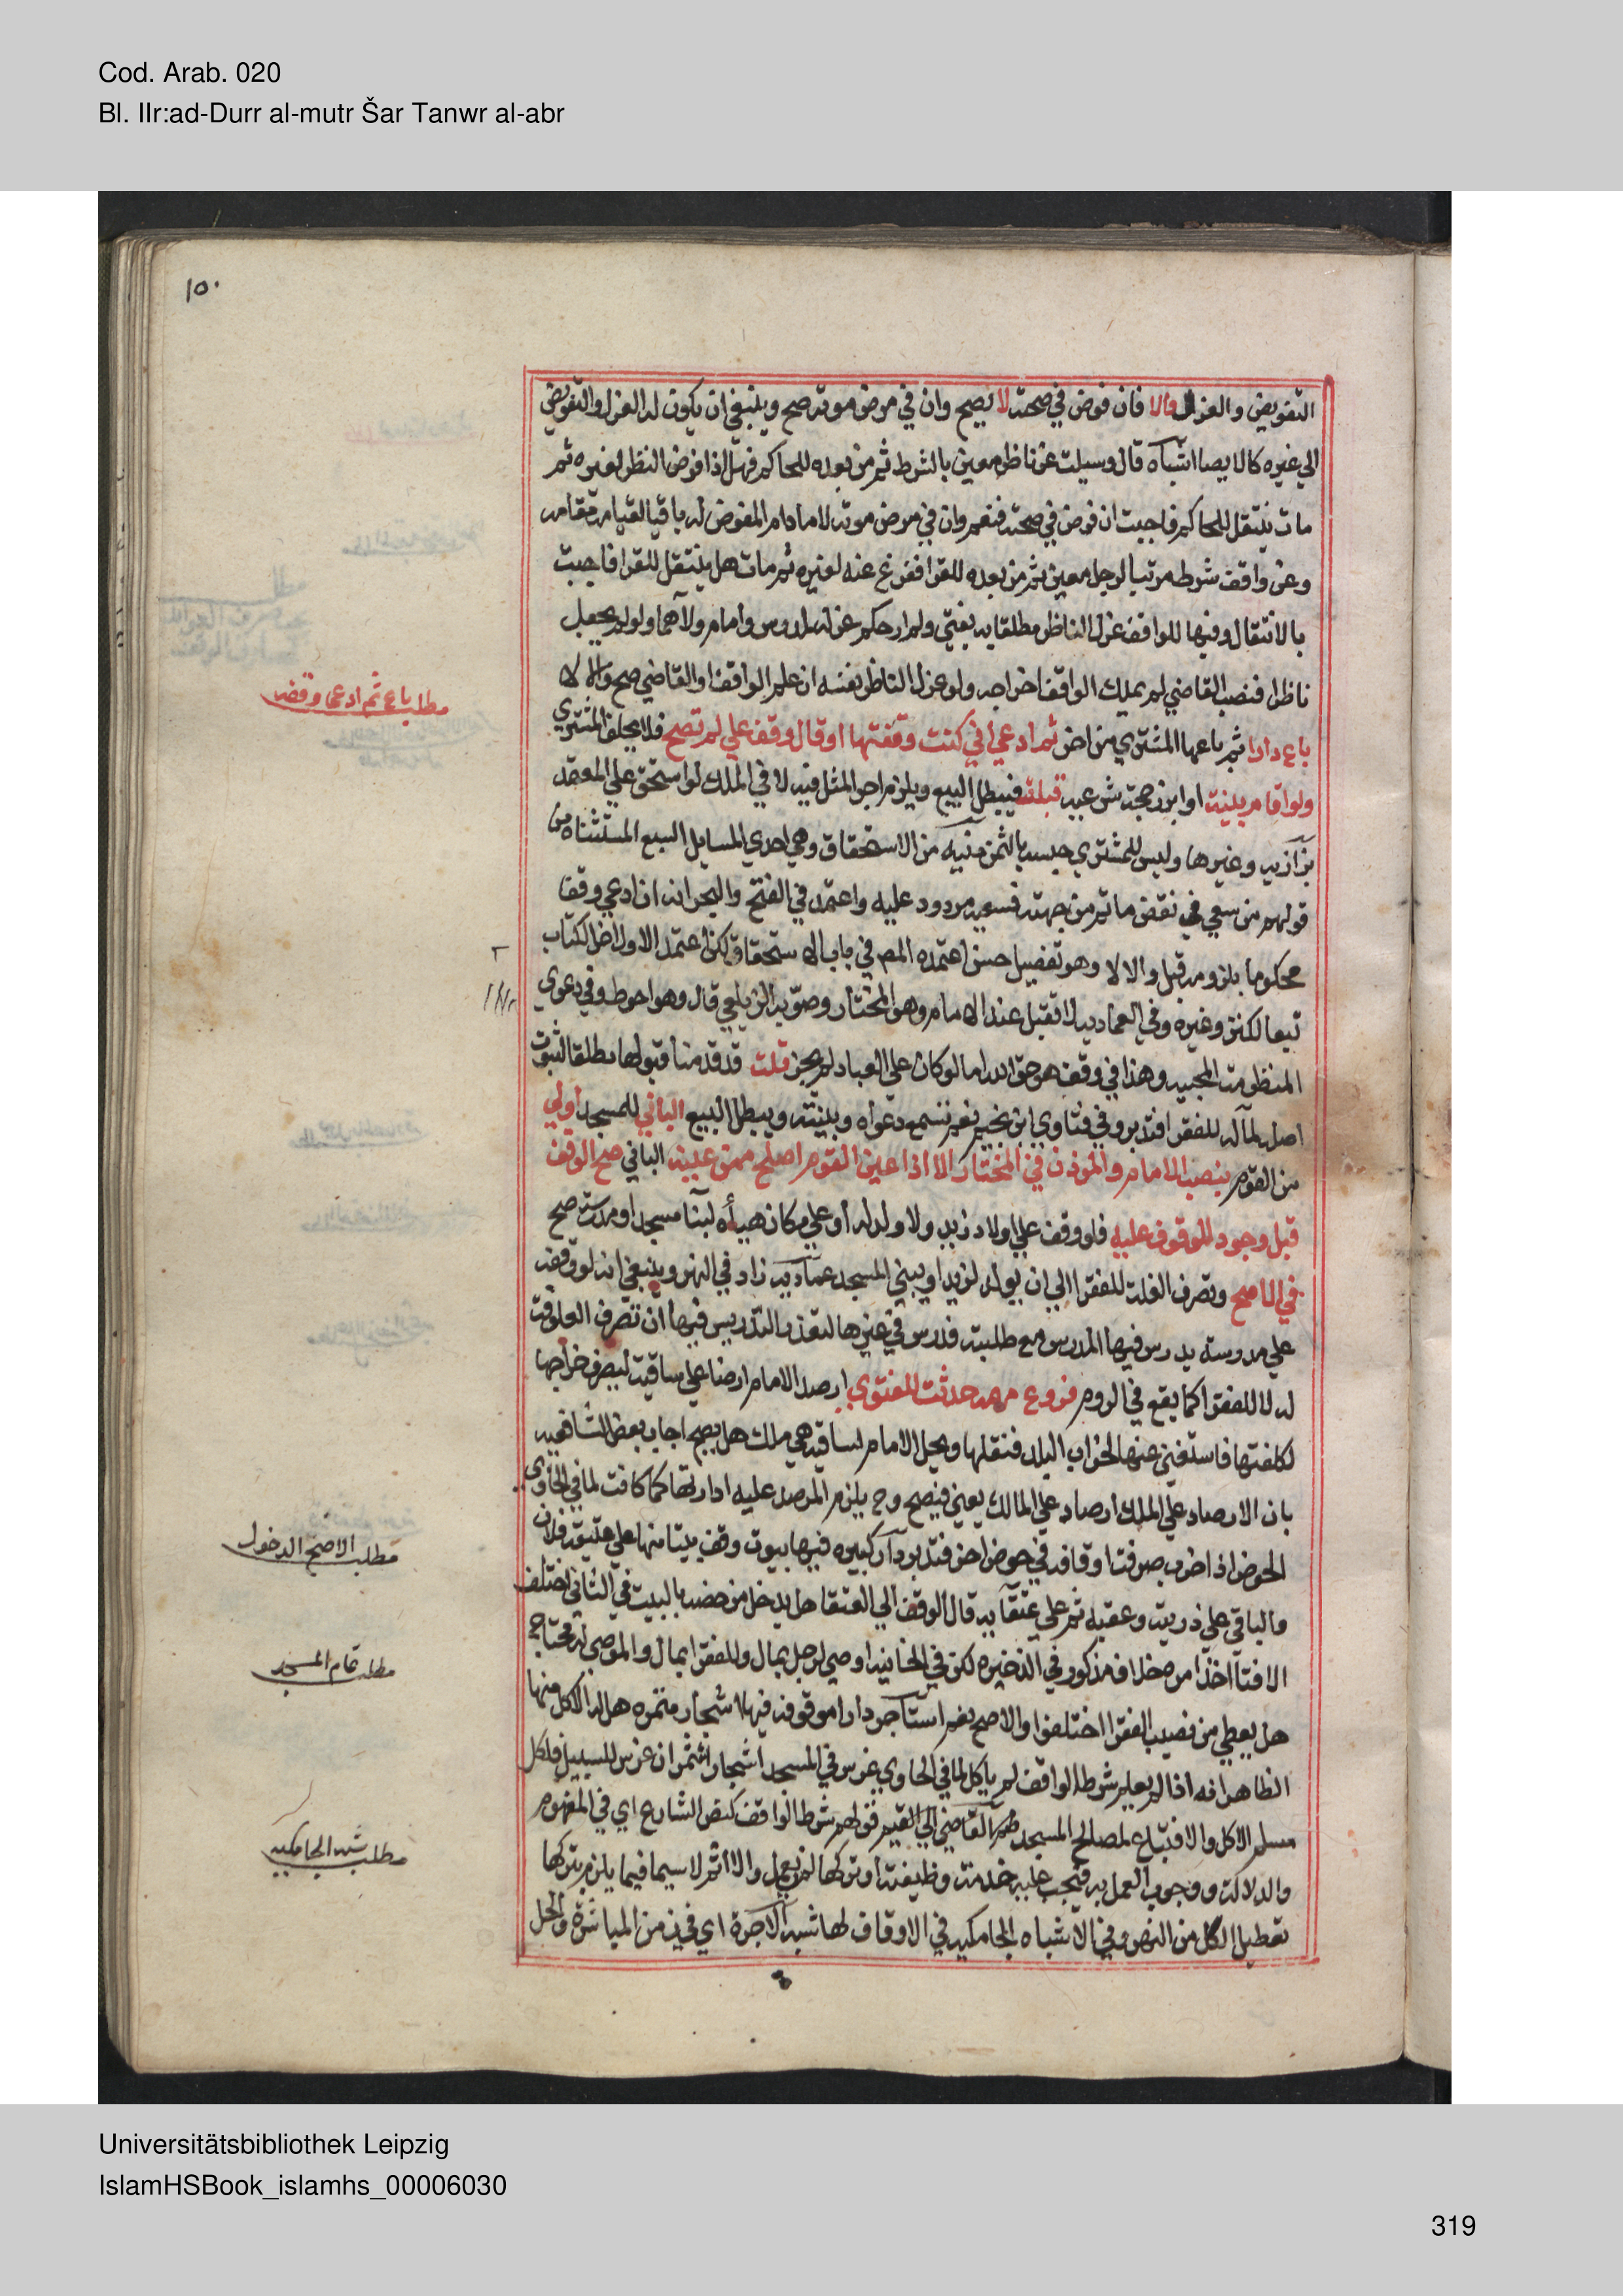 Cod. Arab. 020
Bl. IIr:ad-Durr al-mutr Šar Tanwr al-abr
١٥٠
التفويض والعزل والا فان فوض في صحته لا يصح وان في مرض موته صح وينبغي ان يكون له العزل والتفويض
الي غيره كالايصا اشباه قال وسيلت عن ناظر معين بالشرط ثم من بعده للحاكم فهل اذا فوض النظر لغيره ثم
مات ينتقل للحاكم فاجبت ان فوض في صحته فنعم وان في مرض موته لا ما دام المفوض له باقيا لقيامه مقامه
وعن واقف شرط مرتبا لرجل معين ثم من بعده للفقرا ففرغ عنه لغيره ثم مات هل ينتقل للفقرا فاجبت
بالانتقال وفيها للواقف عزل الناظر مطلقا به يفتي ولم ار حكم عزله لمدرس وامام ولاهما ولو لم يجعل
ناظرا فنصبه القاضي لم يملك الواقف اخراجه ولو عزل الناظر نفسه ان علم الواقف او القاضي صح والا لا
باع دارا ثم باعها المشتري من اخر ثم ادعي اني كنت وقفتها او قال وقف علي لم تصح فلا يحلف المشتري
ولو اقام بينة او ابرز حجة شرعية قبلت فيبطل البيع ويلزم اجر المثل فيه لا في الملك لو استحق علي المعتمد
بزازية وغيرها وليس للمشتري حبسه بالثمن منية من الاستحقاق وهي احدي المسايل السبع المستثناه من
قولهم من سعي في نقض ما تم من جهته فسعيه مردود عليه واعتمد في الفتح والبحر انه ان ادعي وقفا
محكوما بلزومه قبل والا لا وهو تفصيل حسن اعتمده المص في باب الاستحقاق لكن اعتمد الاول اخر الكتاب
تبعا لكنز وغيره وفي العمادية لا تقبل عند الامام وهو المختار وصوبه الزيلعي قال وهو احوط وفي دعوي
المنظومة المحبية وهذا في وقف هو حق الله اما لو كان علي العباد لم يجز قلت قد قدمنا قبولها مطلقا لثبوت
اصله لمآله للفقرا فتدبر وفي فتاوي ابن نجيم نعم تسمع دعواه وبينته ويبطل البيع الباني للمسجد اولي
من القوم بنصب الامام والموذن في المختار الا اذا عين القوم اصلح ممن عينه الباني صح الوقف
قبل وجود الموقوف عليه فلو وقف علي اولاد زيد ولا ولد له او علي مكان هيأه لبنا مسجد او مدرسة صح
في الاصح وتصرف الغلة للفقرا الي ان يولد لزيد او يبني المسجد عمادية زاد في النهر وينبغي انه لو وقفه
علي مدرسة يدرس فيها المدرس مع طلبته فدرس في غيرها لتعذر التدريس فيها ان تصرف العلوفة
له لا للفقرا كما يقع في الروم فروع مهمه حدثت للفتوي ارصد الامام ارضا علي ساقية ليصرف خراجها
لكلفتها فاستغني عنها لخراب البلد فنقلها وكيل الامام لساقية هي ملك هل يصح اجاب بعض الشافعية
بان الارصاد علي الملك ارصاد علي المالك يعني فيصح وح يلزم المرصد عليه ادارتها كما كانت لما في الحاوي
الحوض اذا خرب صرفت اوقافه في حوض اخر فتدبر دار كبيره فيها بيوت وقف بيتا منها علي عتيقه فلان
والباقي علي ذريته وعقبه ثم علي عتقايه قال الوقف الي العتقا هل يدخل من خصه بالبيت في الثاني اختلف
الافتا اخذا من خلاف مذكور في الذخيره لكن في الخانية اوصي لرجل بمال وللفقرا بمال والموصي له محتاج
هل يعطي من نصيب الفقرا اختلفوا والاصح نعم استاجر دارا موقوفه فيها اشجار مثمره هل له الاكل منها
الظاهر انه اذا لم يعلم شرط الواقف لم ياكل لما في الحاوي غرس في المسجد اشجار اتثمر ان غرس للسبيل فلكل
مسلم الاكل والا فتباع لمصالح المسجد قولهم شرط الواقف كنص الشارع اي في المفهوم
والدلالة ووجوب العمل به فيجب عليه خدمة وظيفته او تركها لمن يعمل والا اثم لا سيما فيما يلزم بتركها
تعطيل الكل من النهر وفي الاشباه الجامكية في الاوقاف لها شبه الاجرة اي في زمن المباشرة والحل
مطلب باع ثم ادعي وقفه
مطلب الاصح الدخول
مطلب تمام المسجد
مطلب شبه الجامكيه
Universitätsbibliothek Leipzig
IslamHSBook_islamhs_00006030
319